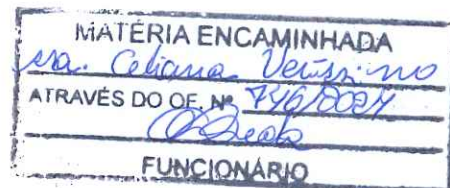 MATÉRIA ENCAMINHADA
sra. Celiana Veríssimo
ATRAVÉS DO OF. Nº 746/2024
FUNCIONÁRIO